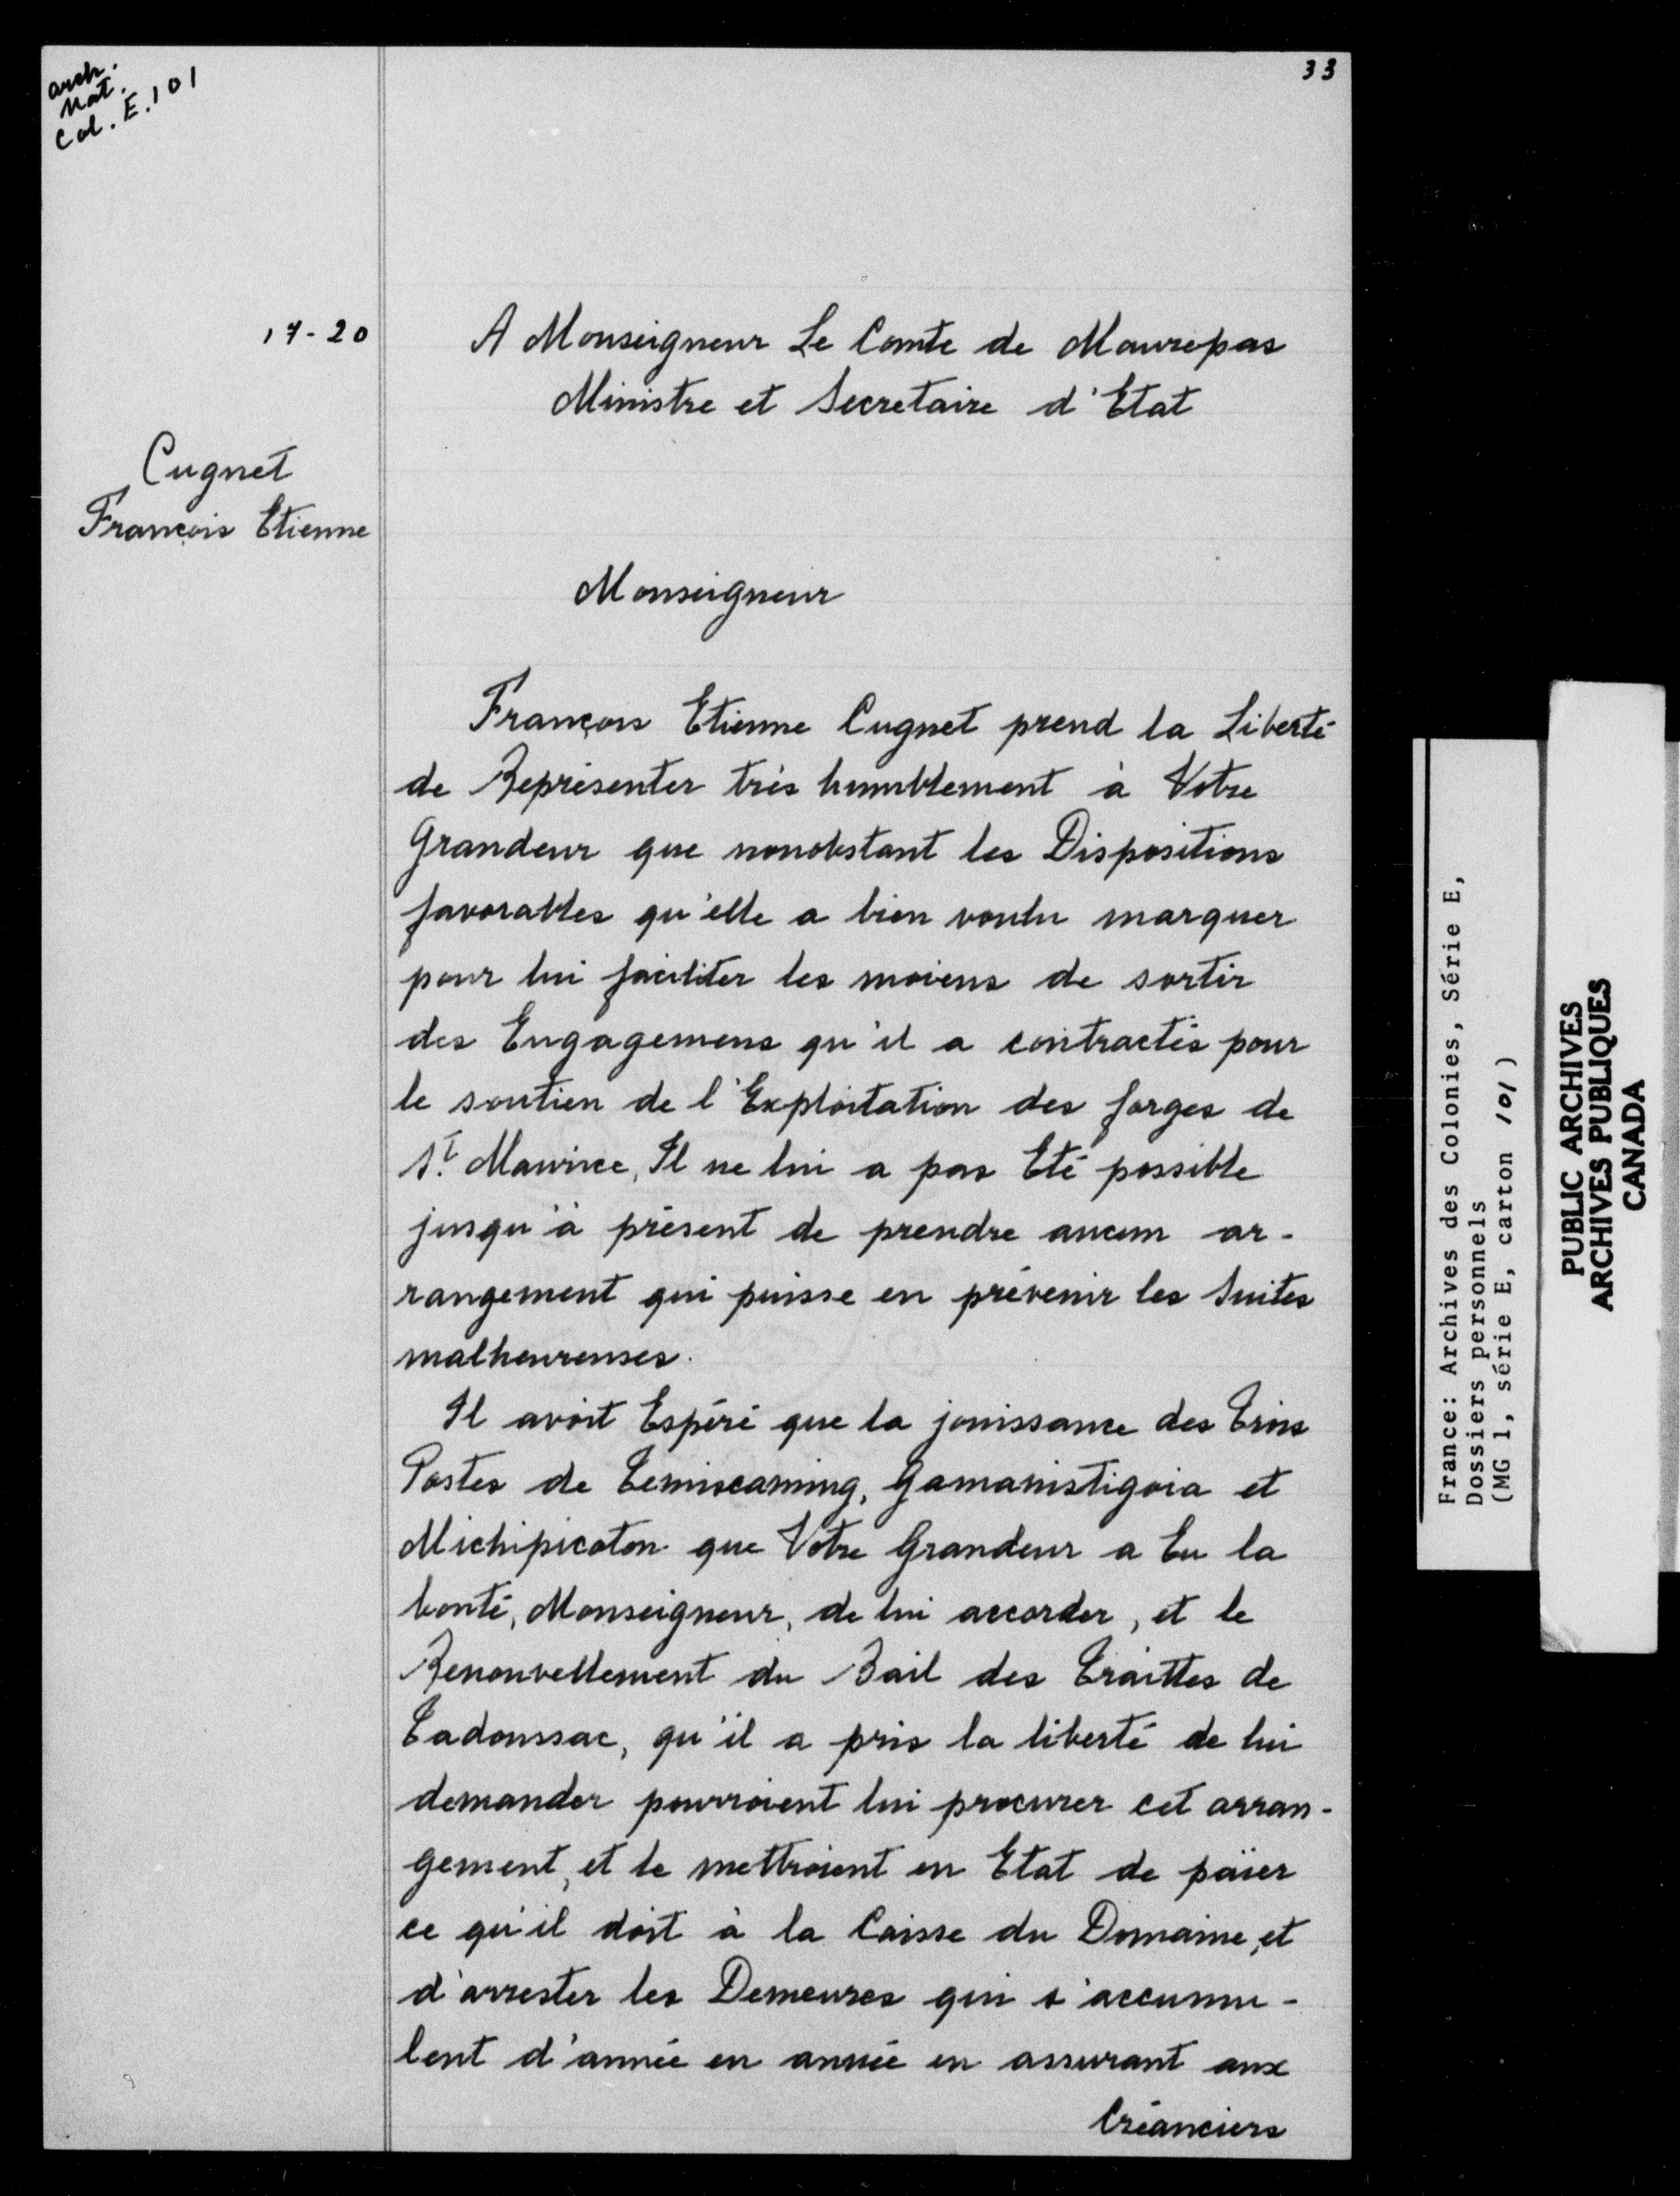 arch.
Nat.
Col. E. 101
33
17-20
A Monseigneur Le Comte de Maurepas
Ministre et Secretaire d'Etat
Cugnet
François Etienne
Monseigneur
François Etienne Cugnet prend la Liberté
de Représenter très humblement à Votre
Grandeur que nonobstant les Dispositions
favorables qu'elle a bien voulu marquer
pour lui faciliter les moiens de sortir
des Engagemens qu'il a contractés pour
le soutien de l'Exploitation des forges de
St. Maurice, Il ne lui a pas Eté possible
jusqu'à présent de prendre aucun ar-
rangement qui puisse en prévenir les Suites
malheureuses.
Il avoit Espéré que la jouissance des Trois
Postes de Temiscaming, Gamanistigoia et
Michipicoton que Votre Grandeur a Eu la
bonté, Monseigneur, de lui accorder, et le
Renouvellement du Bail des Traittes de
Tadoussac, qu'il a pris la liberté de lui
demander pourroient lui procurer cet arran-
gement, et le mettroient en Etat de païer
ce qu'il doit à la Caisse du Domaine, et
d'arrester les Demeures qui s'accumu-
lent d'année en année en assurant aux
Créanciers
France: Archives des Colonies, Série E,
Dossiers personnels
(MG 1, série E, carton 101)
PUBLIC ARCHIVES
ARCHIVES PUBLIQUES
CANADA